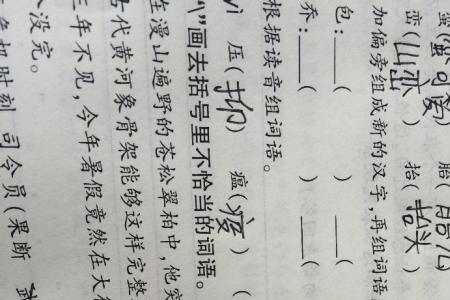 (蛮可爱) 胎(胎儿
峦(山峦) 抬(抬头)
加偏旁组成新的汉字,再组词语
包:____( ) ____(
乔:____( ) ____(
根据读音组词语。
yì 压(抑) 瘟(疫) (
“\”画去括号里不恰当的词语。
在漫山遍野的苍松翠柏中,他突
代黄河象骨架能够这样完整
三年不见,今年暑假竟然在大
没完。
机时刻,司令员(果断